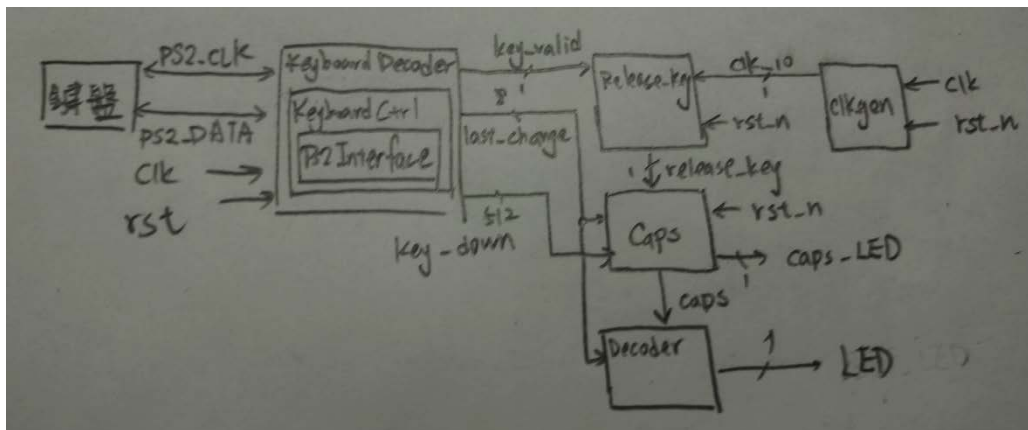 PS2_CLK
鍵盤
PS2_DATA
Clk
rst
Keyboard Decoder
Keyboard Ctrl
PS2 Interface
key_valid
1
8
last_change
512
key_down
Release_key
clk_10
1
rst_n
clkgen
clk
rst_n
1
release_key
Caps
rst_n
caps_LED
1
caps
Decoder
LED